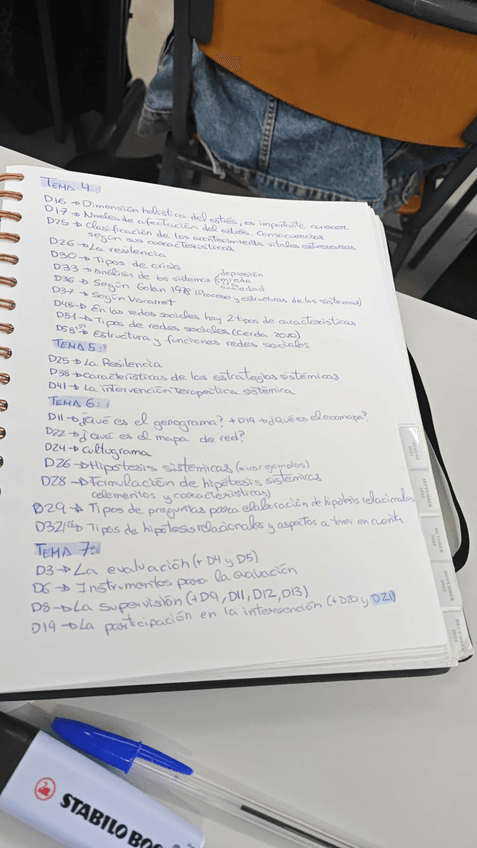 TEMA 4:
D16 → Dimensión holística del estrés, es importante conocer
D17 → Niveles de afectación del estrés. Consecuencias
D25 → Clasificación de los acontecimientos vitales estresores
según sus características
D26 → La resiliencia
D30 → Tipos de crisis
D33 → Análisis de los sistemas
depresión
ansiedad
D36 → Según Golan 1978 (Proceso y estructuras de los sistemas)
D37 → Según
D48 → En las redes sociales hay 2 tipos de características
D54 → Tipos de redes sociales (Cerda 2020)
D58 → Estructura y funciones redes sociales
TEMA 5:
D25 → La Resilencia
D38 → Características de las estrategias sistémicas
D41 → La intervención terapectica sistémica
TEMA 6:
D11 → ¿Qué es el genograma? + D19 → ¿Qué es el ecomapa?
D22 → ¿Qué es el mapa de red?
D24 → Culturgrama
D26 → Hipótesis sistémicas (mirar ejemplos)
D28 → Formulación de hipótesis sistémicas
(elementos y características)
D29 → Tipos de preguntas para elaboración de hipótesis relacionales
D32/ → Tipos de hipótesis relacionales y aspectos a tener en cuenta
TEMA 7:
D3 → La evaluación (+ D4 y D5)
D6 → Instrumentos para la evaluación
D8 → La supervisión (+ D9, D11, D12, D13)
D19 → La participación en la intervención (+ D20 y D21)
STABILO BOS